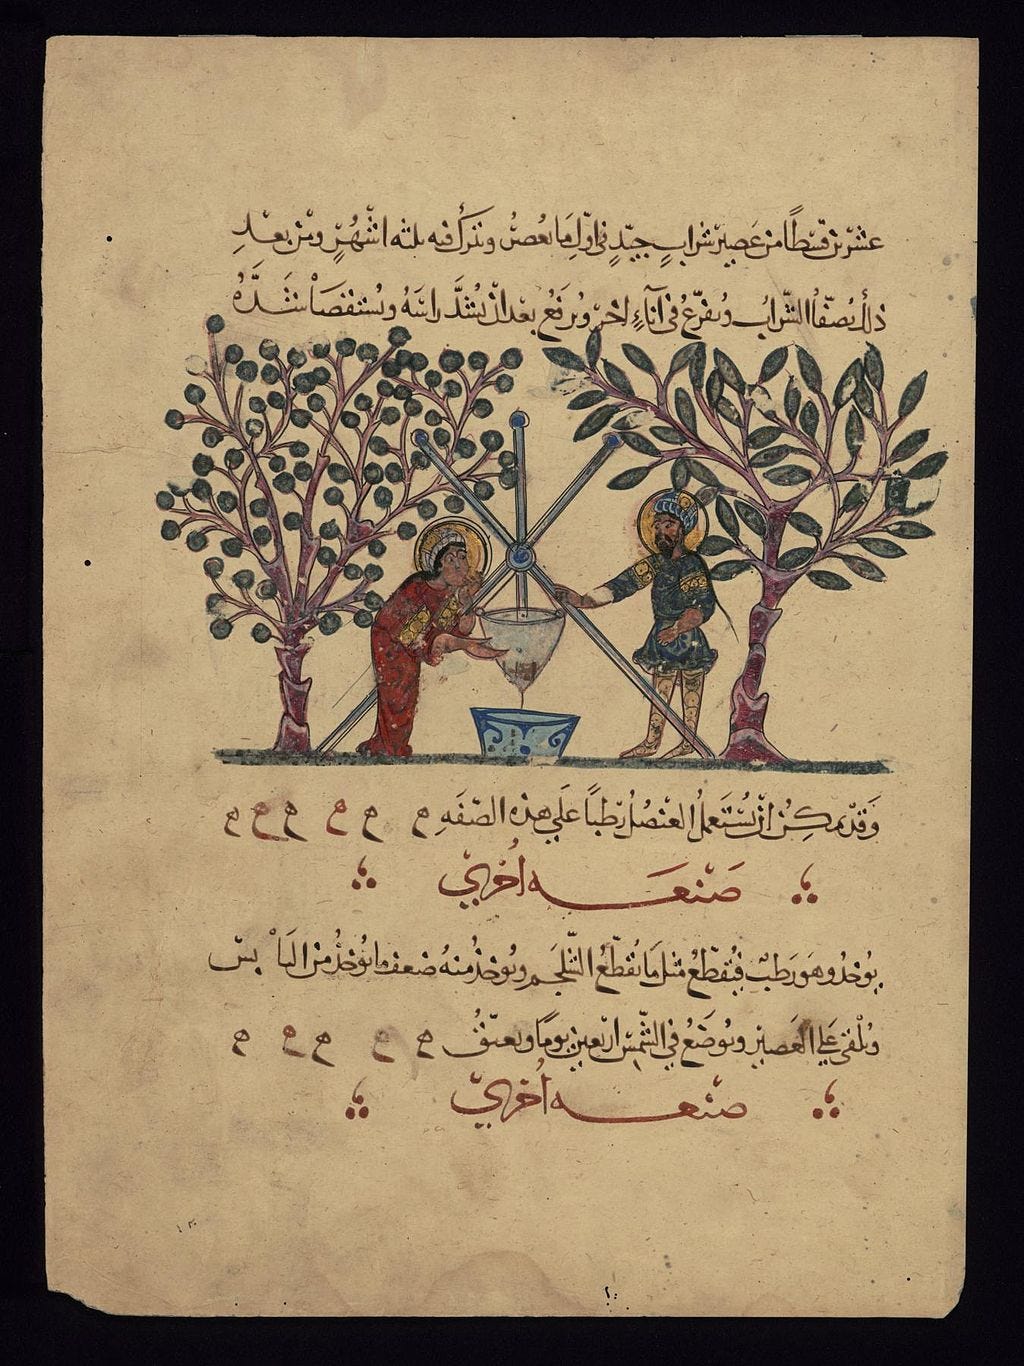 عشرين قسطًا من عصير شرابٍ جيّدٍ في اوّل ما يُعصر ويترك فيه ثلثه اشهرٍ ومن بعد
ذلك يُصفّا الشراب ويُفرّغُ في آناءٍ اخر ويُرفعُ بعد انّ يُشدَّ راسهُ ويُستقصا شدّهُ
وَقد يمكن انْ يُستَعملُ العنصلُ رطبًا علي هذه الصّفَه
صَنعَه اُخري
يوخذُ وهو رَطبٌ فيُقطّعُ مثل ما يُقطّعُ الشّلجَم ويُوخذُ منهُ ضعف ما يُوخذُ من اليابس
ويُلقي علي العصير ويوضَعُ في الشمس اربعين يومًا ويعتّقُ
صنعه اُخري